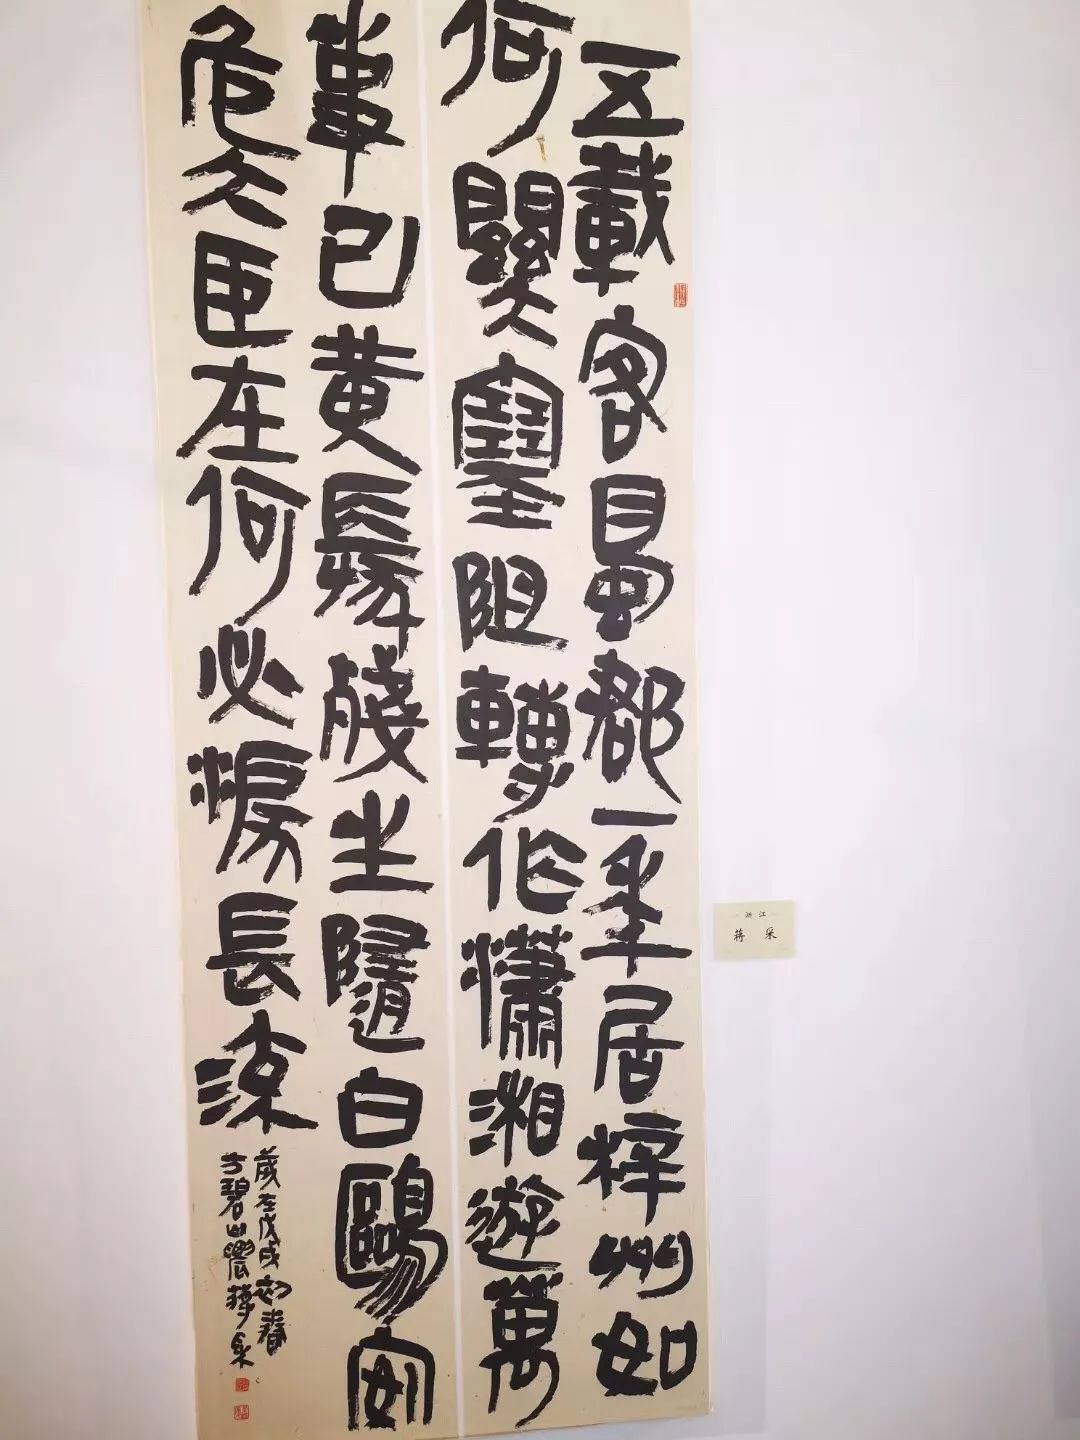 五載客蜀郡一年居梓州如
何關塞阻轉作瀟湘遊萬
事已黄髮殘生隨白鷗安
危大臣在何必淚長流
歲在戊戌初春
碧山農蔣
浙江
蒋 采